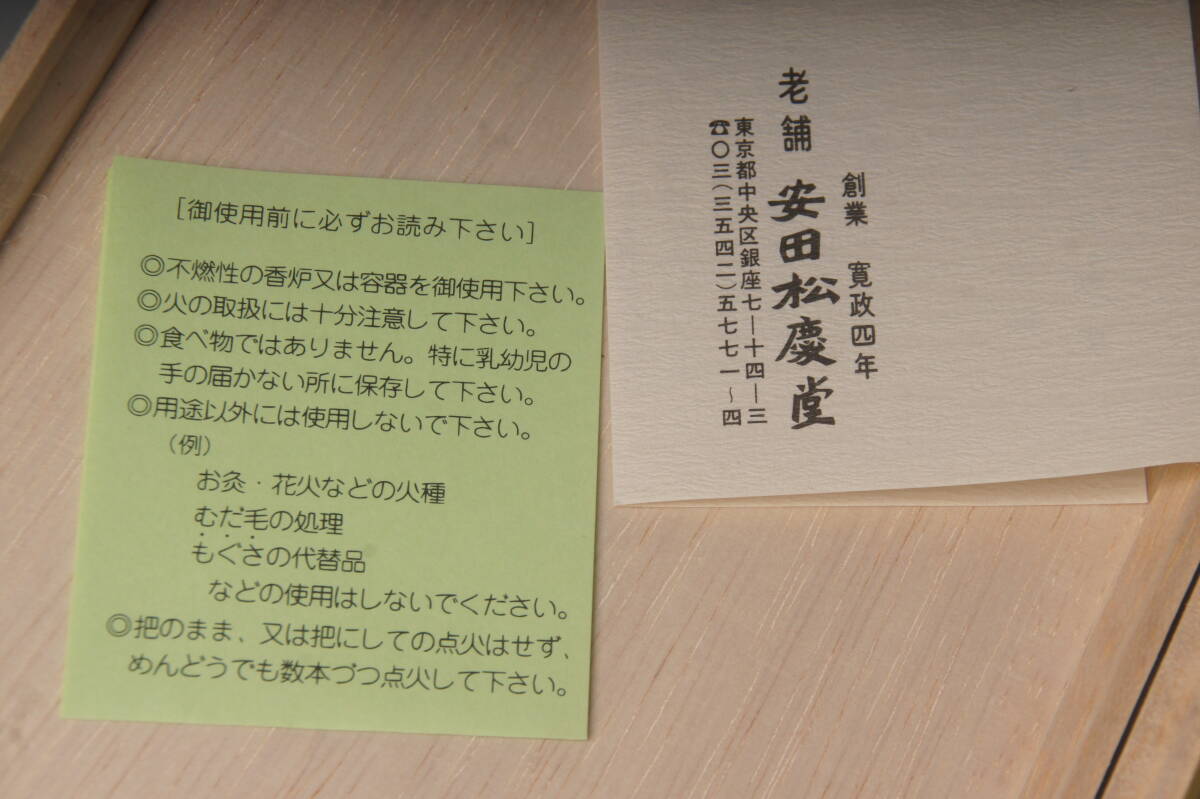 [御使用前に必ずお読み下さい]
◎不燃性の香炉又は容器を御使用下さい。
◎火の取扱には十分注意して下さい。
◎食べ物ではありません。特に乳幼児の
手の届かない所に保存して下さい。
◎用途以外には使用しないで下さい。
(例)
お灸・花火などの火種
むだ毛の処理
もぐさの代替品
などの使用はしないでください。
◎把のまま、又は把にしての点火はせず、
めんどうでも数本づつ点火して下さい。
創業 寛政四年
老舗 安田松慶堂
東京都中央区銀座七―十四―三
☎〇三(三五四二)五七七一~四